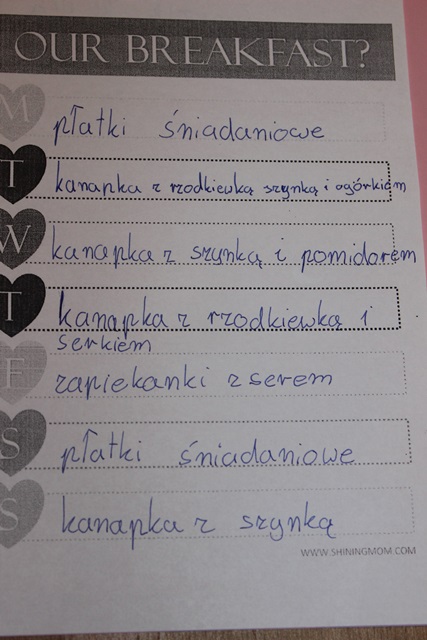 OUR BREAKFAST?
M
płatki śniadaniowe
T
kanapka z rzodkiewką szynką i ogórkiem
W
kanapka z szynką i pomidorem
T
kanapka z rzodkiewką i
serkiem
F
zapiekanki z serem
S
płatki śniadaniowe
S
kanapka z szynką
WWW.SHININGMOM.COM